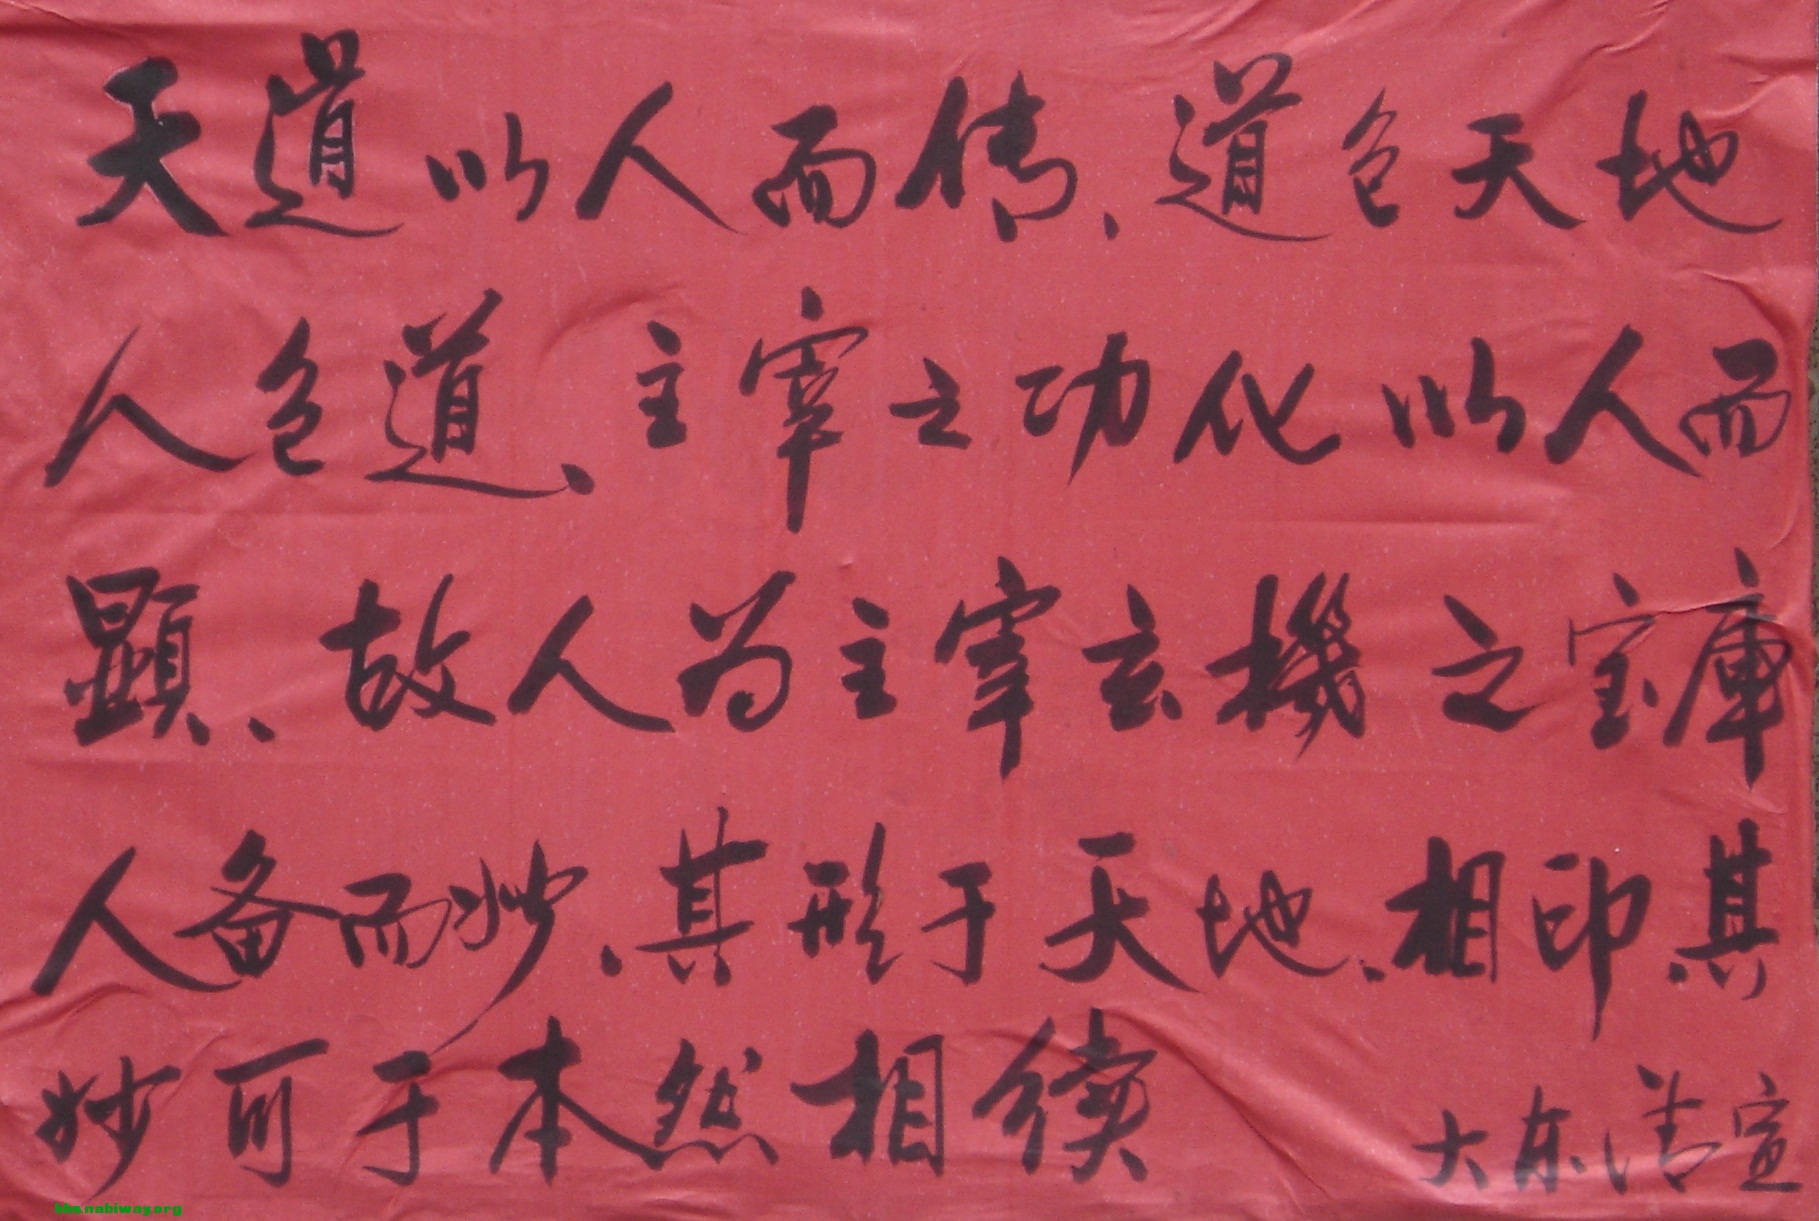 天道以人而传、道包天地
人包道、主宰之功化以人而
顯、故人为主宰玄機之宝庫
人备而妙、其形于天地、相印其
妙可于本然相續
大东清宣
bbs.nabiway.org